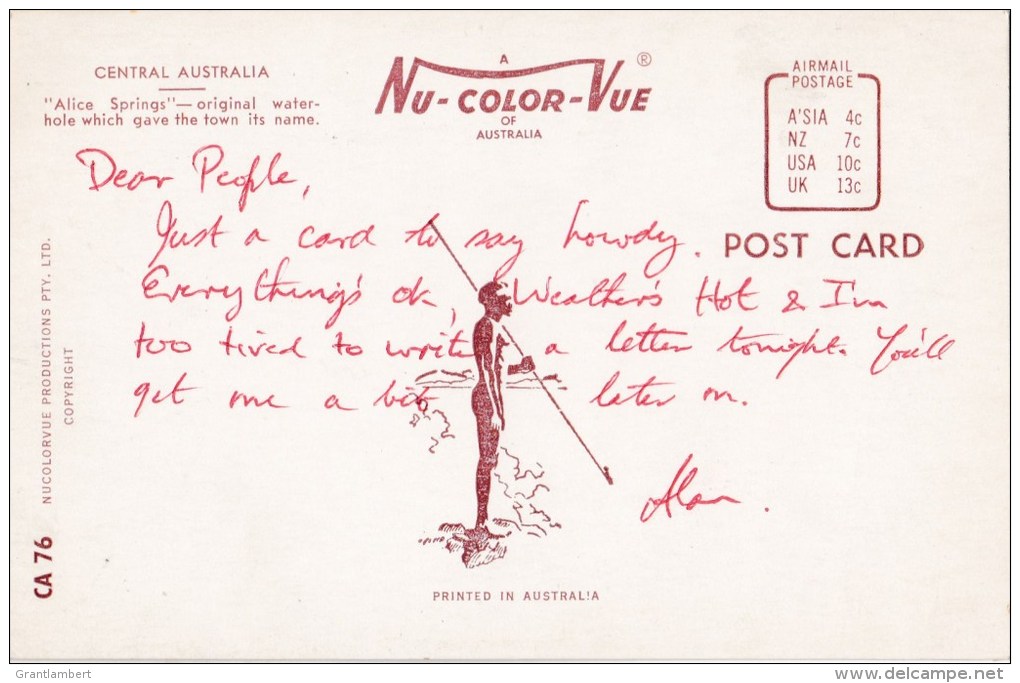 CENTRAL AUSTRALIA
"Alice Springs"— original water-
hole which gave the town its name.
A
NU-COLOR-VUE ®
OF
AUSTRALIA
AIRMAIL
POSTAGE
A'SIA 4c
NZ 7c
USA 10c
UK 13c
POST CARD
Dear People,
Just a card to say howdy.
Everything's ok, Weather's Hot & I'm
too tired to write a letter tonight. You'll
get me a bit later on.
Alan.
NUCOLORVUE PRODUCTIONS PTY. LTD.
COPYRIGHT
CA 76
PRINTED IN AUSTRALIA
Grantlambert
www.delcampe.net